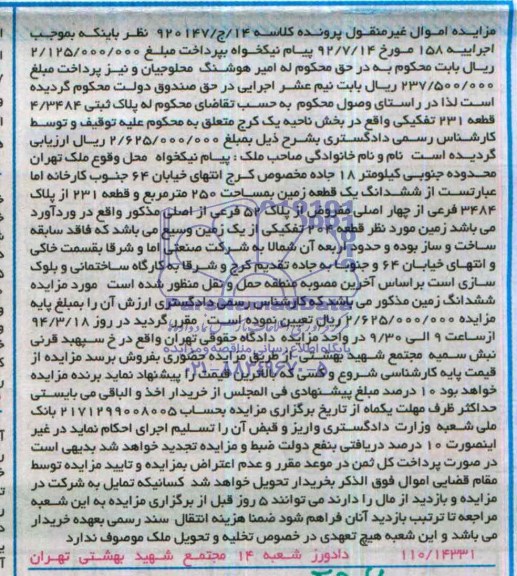 مزایده اموال غیرمنقول پرونده کلاسه ۱۴/ج/۹۲۰۱۴۷ نظر باینکه بموجب
اجراییه ۱۵۸ مورخ ۹۲/۷/۱۴ پیام نیکخواه بپرداخت مبلغ ۲/۱۲۵/۰۰۰/۰۰۰
ریال بابت محکوم به در حق محکوم له امیر هوشنگ محلوجیان و نیز پرداخت مبلغ
۲۳۷/۵۰۰/۰۰۰ ریال بابت نیم عشر اجرایی در حق صندوق دولت محکوم گردیده
است لذا در راستای وصول محکوم به حسب تقاضای محکوم له پلاک ثبتی ۴/۳۴۸۴
قطعه ۲۳۱ تفکیکی واقع در بخش ناحیه یک کرج متعلق به محکوم علیه توقیف و توسط
کارشناس رسمی دادگستری بشرح ذیل بمبلغ ۲/۶۲۵/۰۰۰/۰۰۰ ریال ارزیابی
گردیده است نام و نام خانوادگی صاحب ملک : پیام نیکخواه محل وقوع ملک تهران
محدوده جنوبی کیلومتر ۱۸ جاده مخصوص کرج انتهای خیابان ۶۴ جنوب کارخانه اما
عبارتست از ششدانگ یک قطعه زمین بمساحت ۲۵۰ مترمربع و قطعه ۲۳۱ از پلاک
۳۴۸۴ فرعی از چهار اصلی مفروض از پلاک ۵۲ فرعی از اصلی مذکور واقع در وردآورد
می باشد زمین مورد نظر قطعه تفکیکی از یک زمین وسیع می باشد که فاقد سابقه
ساخت و ساز بوده و حدود اربعه آن شمالا به شرکت صنعتی اما و شرقا بقسمت خاکی
و انتهای خیابان ۶۴ و جنوبا به جاده تقدیم کرج و شرقا به کارگاه ساختمانی و بلوک
سازی است براساس آخرین مصوبه منطقه حمل و نقل منظور شده است مورد مزایده
ششدانگ زمین مذکور می باشد که کارشناس رسمی دادگستری ارزش آن را بمبلغ پایه
مزایده ۲/۶۲۵/۰۰۰/۰۰۰ ریال تعیین نموده است . مقرر گردید در روز ۹۴/۳/۱۸
ازساعت ۹ الی ۹/۳۰ در واحد مزایده دادگاه حقوقی تهران واقع در خ سپهبد قرنی
نبش سمیه مجتمع شهید بهشتی از طریق مزایده حضوری بفروش برسد مزایده از
قیمت پایه کارشناسی شروع و کسی که بالاترین قیمت را پیشنهاد نماید برنده مزایده
خواهد بود ۱۰ درصد مبلغ پیشنهادی فی المجلس از خریدار اخذ و الباقی می بایستی
حداکثر ظرف مهلت یکماه از تاریخ برگزاری مزایده بحساب ۲۱۷۱۲۹۹۰۰۸۰۰۵ بانک
ملی شعبه وزارت دادگستری واریز و قبض آن را تسلیم اجرای احکام نماید در غیر
اینصورت ۱۰ درصد دریافتی بنفع دولت ضبط و مزایده تجدید خواهد شد بدیهی است
در صورت پرداخت کل ثمن در موعد مقرر و عدم اعتراض بمزایده و تایید مزایده توسط
مقام قضایی اموال فوق الذکر بخریدار تحویل خواهد شد کسانیکه تمایل به شرکت در
مزایده و بازدید از مال را دارند می توانند ۵ روز قبل از برگزاری مزایده به این شعبه
مراجعه تا ترتیب بازدید آنان فراهم شود ضمنا هزینه انتقال سند رسمی بعهده خریدار
می باشد و این شعبه هیچ تعهدی در خصوص تخلیه و تحویل ملک موصوف ندارد
۱۱۰/۱۴۳۳۱ دادورز شعبه ۱۴ مجتمع شهید بهشتی تهران